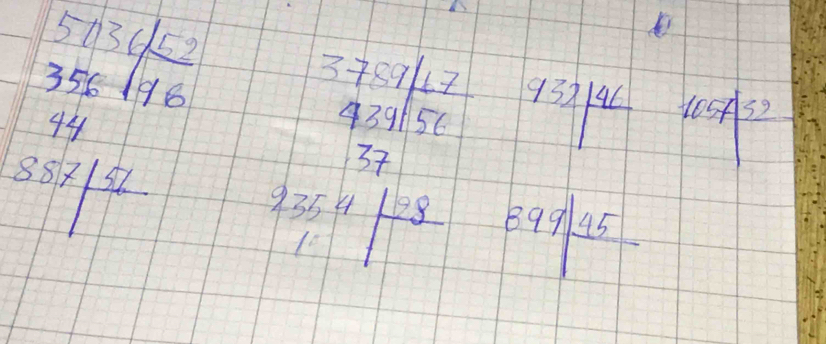 5036 52
356 96
44
3789 67
439 56
37
932 46
1057 32
887 56
2354 28
1
899 45